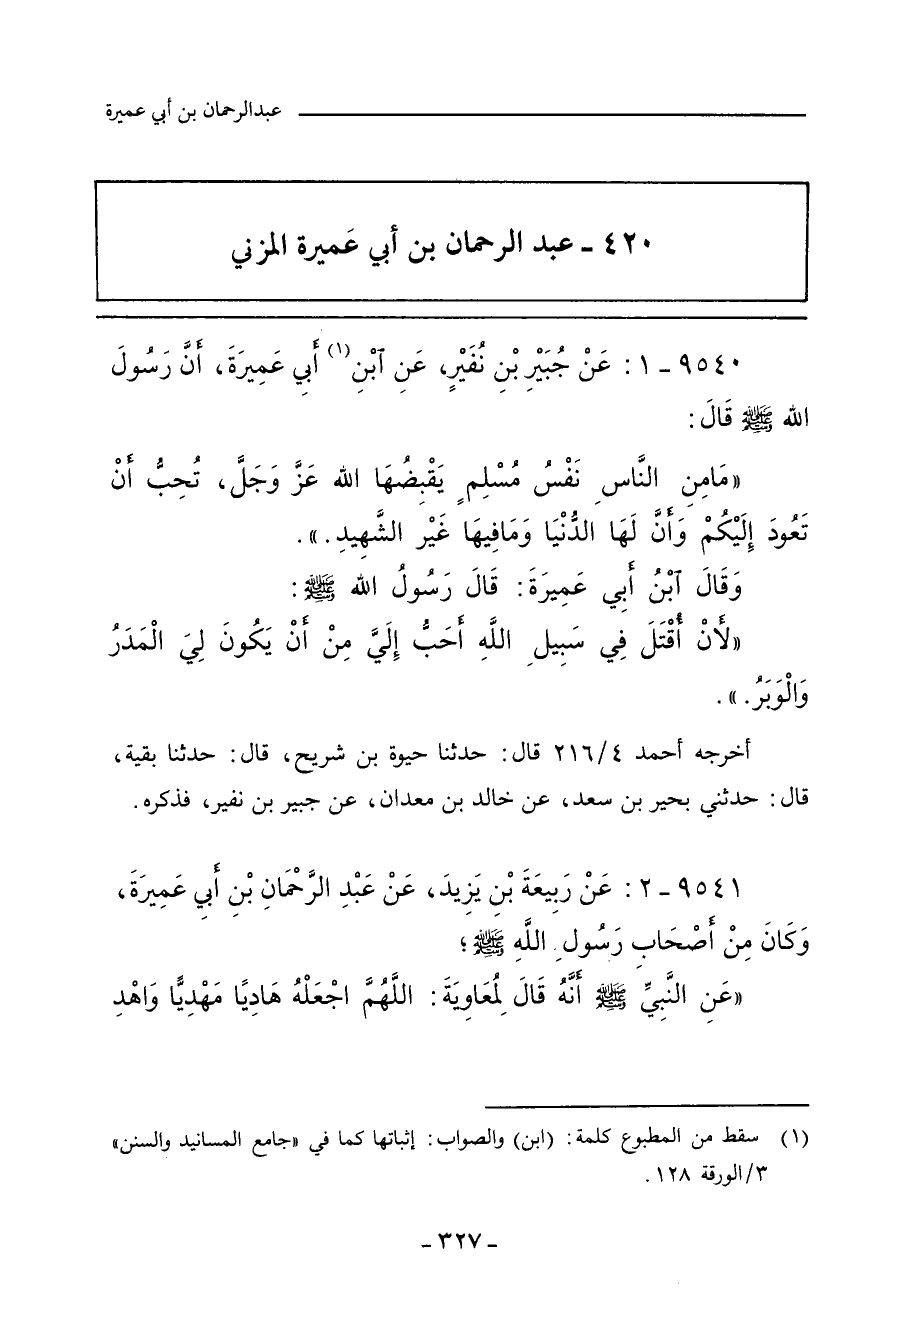 عبدالرحمان بن أبي عميرة
٤٢٠ - عبد الرحمان بن أبي عَميرة المزني
٩٥٤٠ - ١ : عَنْ جُبَيْرِ بْنِ نُفَيْرٍ، عَنِ ٱبْنِ(١) أَبِي عَمِيرَةَ، أَنَّ رَسُولَ
الله ﷺ قَالَ:
«مَامِنِ النَّاسِ نَفْسُ مُسْلِمٍ يَقْبِضُهَا الله عَزَّ وَجَلَّ، تُحِبُّ أَنْ
تَعُودَ إِلَيْكُمْ وَأَنَّ لَهَا الدُّنْيَا وَمَافِيهَا غَيْر الشَّهِيدِ.».
وَقَالَ ٱبْنُ أَبِي عَمِيرَةَ: قَالَ رَسُولُ الله ﷺ:
«لَأَنْ أُقْتَلَ فِي سَبِيلِ اللَّهِ أَحَبُّ إِلَيَّ مِنْ أَنْ يَكُونَ لِيَ الْمَدَرُ
وَالْوَبَرُ.».
أخرجه أحمد ٢١٦/٤ قال: حدثنا حيوة بن شريح، قال: حدثنا بقية،
قال: حدثني بحير بن سعد، عن خالد بن معدان، عن جبير بن نفير، فذكره.
٩٥٤١ - ٢ : عَنْ رَبِيعَةَ بْنِ يَزِيدَ، عَنْ عَبْدِ الرَّحْمَانِ بْنِ أَبِي عَمِيرَةَ،
وَكَانَ مِنْ أَصْحَابِ رَسُولِ اللَّهِ ﷺ؛
«عَنِ النَّبِيِّ ﷺ أَنَّهُ قَالَ لِمُعَاوِيَةَ: اللَّهُمَّ اجْعَلْهُ هَادِيًا مَهْدِيًّا وَاهْدِ
(١) سقط من المطبوع كلمة: (ابن) والصواب: إثباتها كما في «جامع المسانيد والسنن»
٣/الورقة ١٢٨.
- ٣٢٧ -